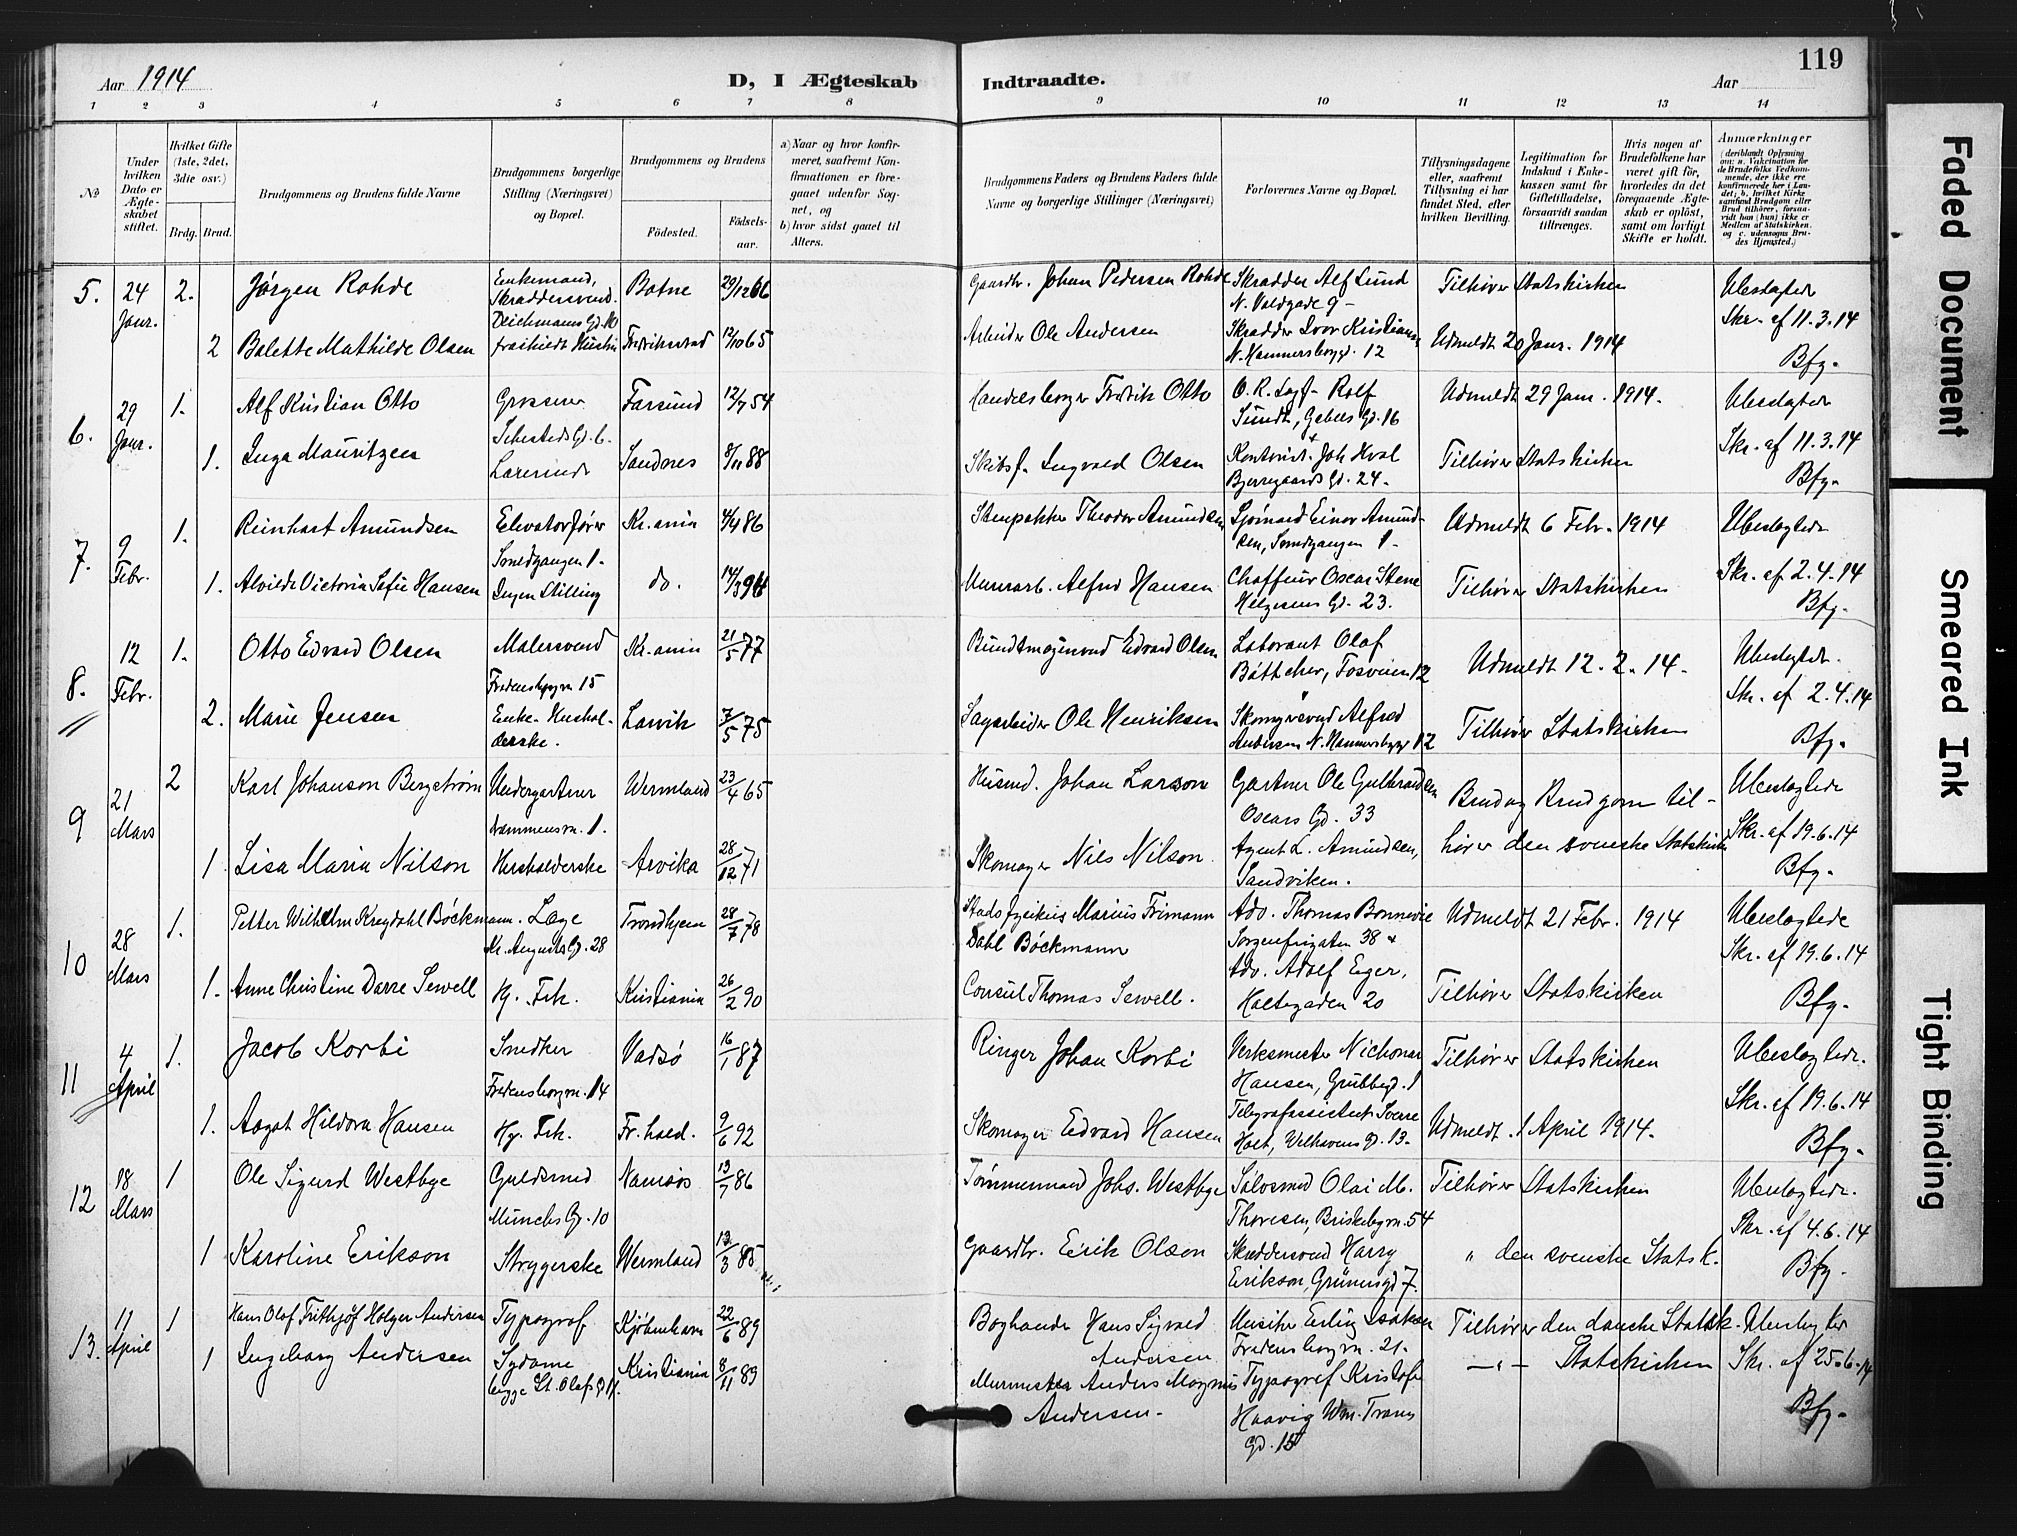 119
Aar 1914
D, I Ægteskab Indtraadte.
Aar
1 2 3 4 5 6 7 8 9 10 11 12 13 14
№
Under hvilken Dato er Ægteskabet stiftet.
Hvilket Gifte (1ste, 2det, 3die osv.)
Brdg. Brud.
Brudgommens og Brudens fulde Navne
Brudgommens borgerlige Stilling (Næringsvei) og Bopæl.
Brudgommens og Brudens
Födested. Födsels-aar.
a) Naar og hvor konfirmeret, saafremt Konfirmationen er foregaaet udenfor Sognet, og
b) hvor sidst gaaet til Alters.
Brudgommens Faders og Brudens Faders fulde Navne og borgerlige Stillinger (Næringsvei)
Forlovernes Navne og Bopæl.
Tillysningsdagene eller, saafremt Tillysning ei har fundet Sted, efter hvilken Bevilling.
Legitimation for Indskud i Enkekassen samt for Giftetilladelse, forsaavidt saadan tiltrænges.
Hvis nogen af Brudefolkene har været gift för, hvorledes da det foregaaende Ægteskab er oplöst, samt om lovligt Skifte er holdt.
Anmærkninger
5. 24 Janr. 2. Jørgen Rohde Enkemand, Skræddersvend. Deichmans Gd. 10 Botne 29/12 66 Gaardbr. Johan Pedersen Rohde Skrædder Alf Lund N. Voldgade 9 - Tilhører Statskirken Ubeslægtede
2 Bolette Mathilde Olsen fraskildt Hustru Fredrikstad 12/10 65 Arbeider Ole Andersen Skrædder Ivor N. Hammersborggd. 12 Udmeldt 20 Janr. 1914 Skr. af 11.3.14 Bfg.
6. 29 Janr. 1. Alf Kristian Otto Grosserer Sehesteds Gd. 6. Farsund 12/7 54 Handelsborger Fredrik Otto O. R. Sagf. Rolf Sundt, Gebels Gd. 16 Udmeldt 29 Janr. 1914. Ubeslægtede
1. Inga Mauritzen Lærerinde Sandnes 8/11 88 Skibsf. Ingvald Olsen Kontorist. Joh. Hval Bjerregaards Gd. 24. Tilhører Statskirken Skr. af 11.3.14 Bfg.
7. 9 Febr. 1. Reinhart Amundsen Elevatorfører Smedgangen 1. Kr.ania 4/4 86 Stenpakker Theodor Amundsen Sjømand Einar Amundsen, Smedgangen 1. Udmeldt 6 Febr. 1914 Ubeslægtede
1. Alvilde Victoria Sofie Hansen Ingen Stilling do. 14/3 Murerarb. Alfred Hansen Chaffeur Oscar Stene Helgesens Gd. 23. Tilhører Statskirken Skr. af 2.4.14 Bfg.
8. 12 Febr. 1. Otto Edvard Olsen Malersvend Fredensborgvn 15 Kr.ania 21/5 77 Buntmagersvend Edvard Olsen Laborant Olaf Bøttcher, Fosveien 12 Udmeldt 12.2.14. Ubeslægtede.
2. Marie Jensen Enke. Husholderske. Larvik 7/5 75 Sagarbeider Ole Henriksen Skomagersvend Alfred Andersen N. Hammersborggd 12 Tilhører Statskirken Skr. af 2.4.14 Bfg.
9 21 Mars 2 Karl Johanson Bergström Undergartner Drammensvn. 1. Wermland 23/4 65 Husmd. Johan Larsson Gartner Ole Gulbrandsen Oscars Gd. 33 Brud og Brudgom til- Ubeslægtede
1 Lisa Maria Nilson Husholderske Arvika 28/12 71 Skomager Nils Nilson Agent L. Amundsen, Sandviken. hører den svenske Statskirke Skr. af 19.6.14 Bfg.
10 28 Mars 1. Petter Wilhelm Kreydahl Bøckmann. Læge Kr. Augusts Gd. 28 Trondhjem 28/7 78 Stadsfysikus Marius Frimann Dahl Bøckmann Adv. Thomas Bonnevie Sorgenfrigaten 38 & Udmeldt 21 Febr. 1914 Ubeslægtede
1. Anne Christine Darre Sewell Hg. Frk. Kristiania 26/2 90 Consul Thomas Sewell. Adv. Adolf Eger, Holtegaden 20 Tilhører Statskirken Skr. af 19.6.14 Bfg.
11 4 April 1. Jacob Korbi Snedker Fredensborgvn. 14 Vadsø 16/1 87 Ringer Johan Korbi Verksmester Hansen, Grubbegd. 1 Tilhører Statskirken Ubeslægtede.
1. Aagot Hildora Hansen Hg. Frk. Fr.hald. 9/6 92 Skomager Edvard Hansen Telegrafassistent Sverre Holt, Welhavens Gd. 13. Udmeldt. 1 April 1914. Skr. af 19.6.14 Bfg.
12 18 Mars 1 Ole Sigurd Westbye Guldsmed Munchs Gd. 10 Namsos 13/7 86 Tømmermand Johs. Westbye Sølvsmed Olai M. Thoresen, Briskebyvn. 54 Tilhører Statskirken Ubeslægtede.
1 Karoline Erikson Strygerske Wermland 13/3 85 Gaardbr. Eirik Olson Skræddersvend Harry Erikson, Grünersgd 7. " den svenske Statsk. Skr. af 4.6.14 Bfg.
13. 11 April 1 Hans Olof Frithjof Holger Andersen Typograf Kjøbenhavn 22/6 89 Boghandler Hans Sigvald Andersen Musiker Erling Isaksen Fredensborgvn. 21. Tilhører den danske Statsk. Ubeslægtede
1 Ingeborg Andersen Sydame begge St. Olafs Gd 11. Kristiania 8/11 89 Murmester Anders Magnus Andersen. Typograf Kristofer Haavig Wm. Trams Gd. 15 —"— Statskirken Skr. af 25.6.14 Bfg.
Faded Document
Smeared Ink
Tight Binding